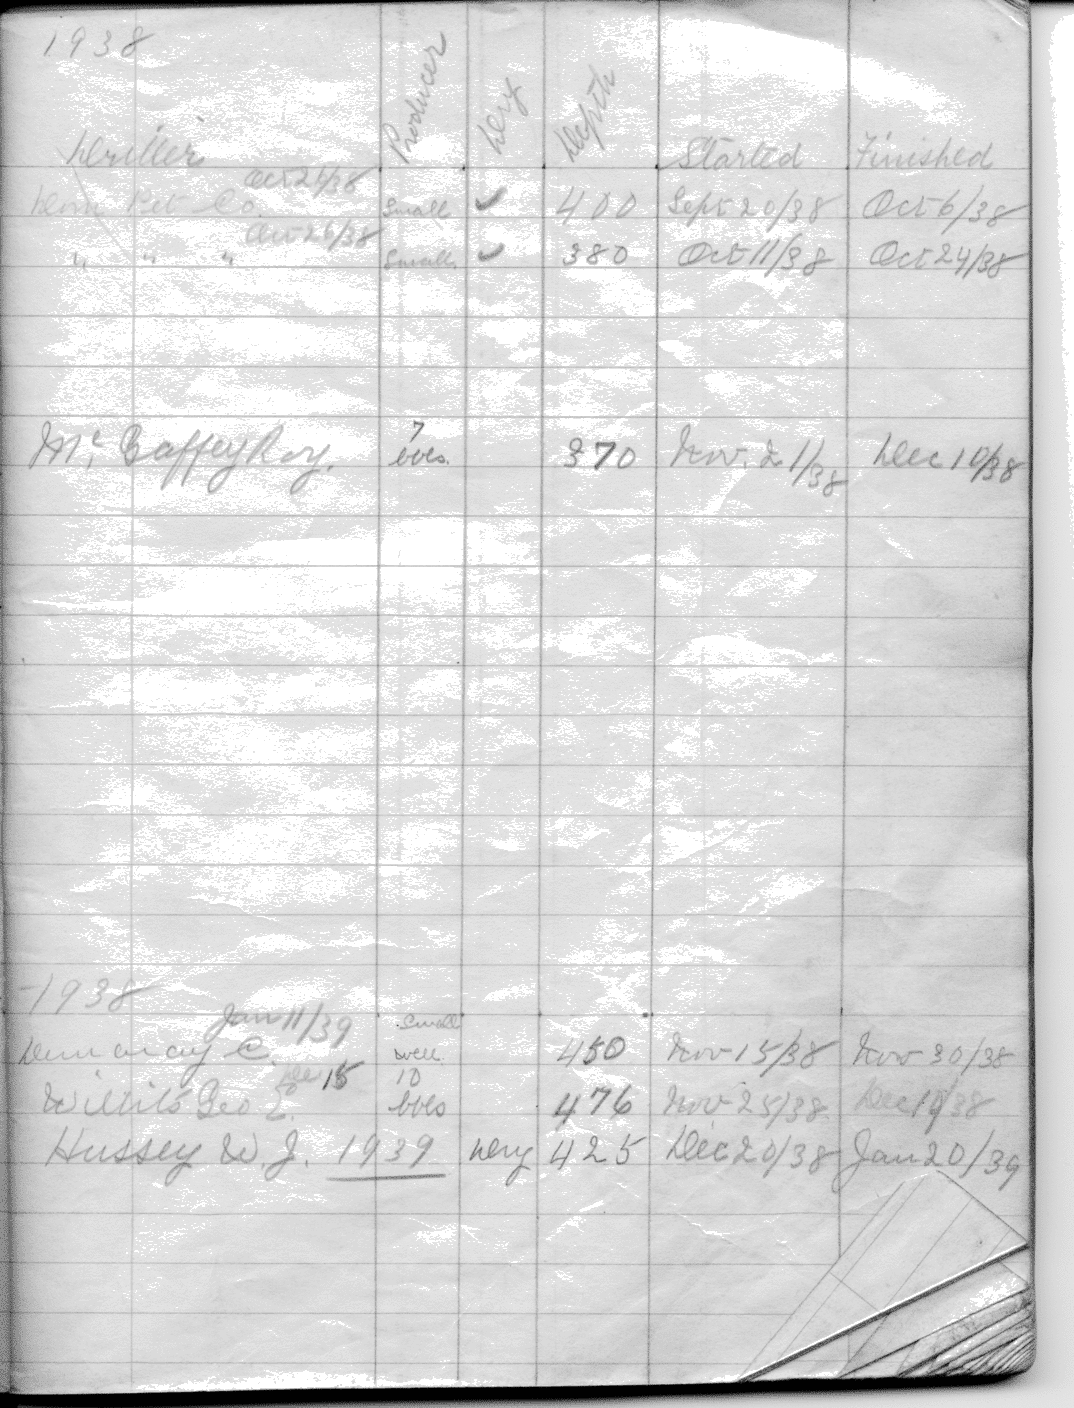 1938
Driller Producer Dry Depth Started Finished
Oct 26/38
Dom Pet Co. Small ✓ 400 Sept 20/38 Oct 6/38
Oct 26/38
" " " Small ✓ 380 Oct 11/38 Oct 24/38
7
Mc Gaffey Roy. bbls. 370 Nov. 21/38 Dec 10/38
1938
Jan 11/39 Small
C. well 450 Nov 15/38 Nov 30/38
15 10
Willits Geo E. bbls 476 Nov 25/38 Dec 19/38
Hussey W. J. 1939 Dry 425 Dec 20/38 Jan 20/39